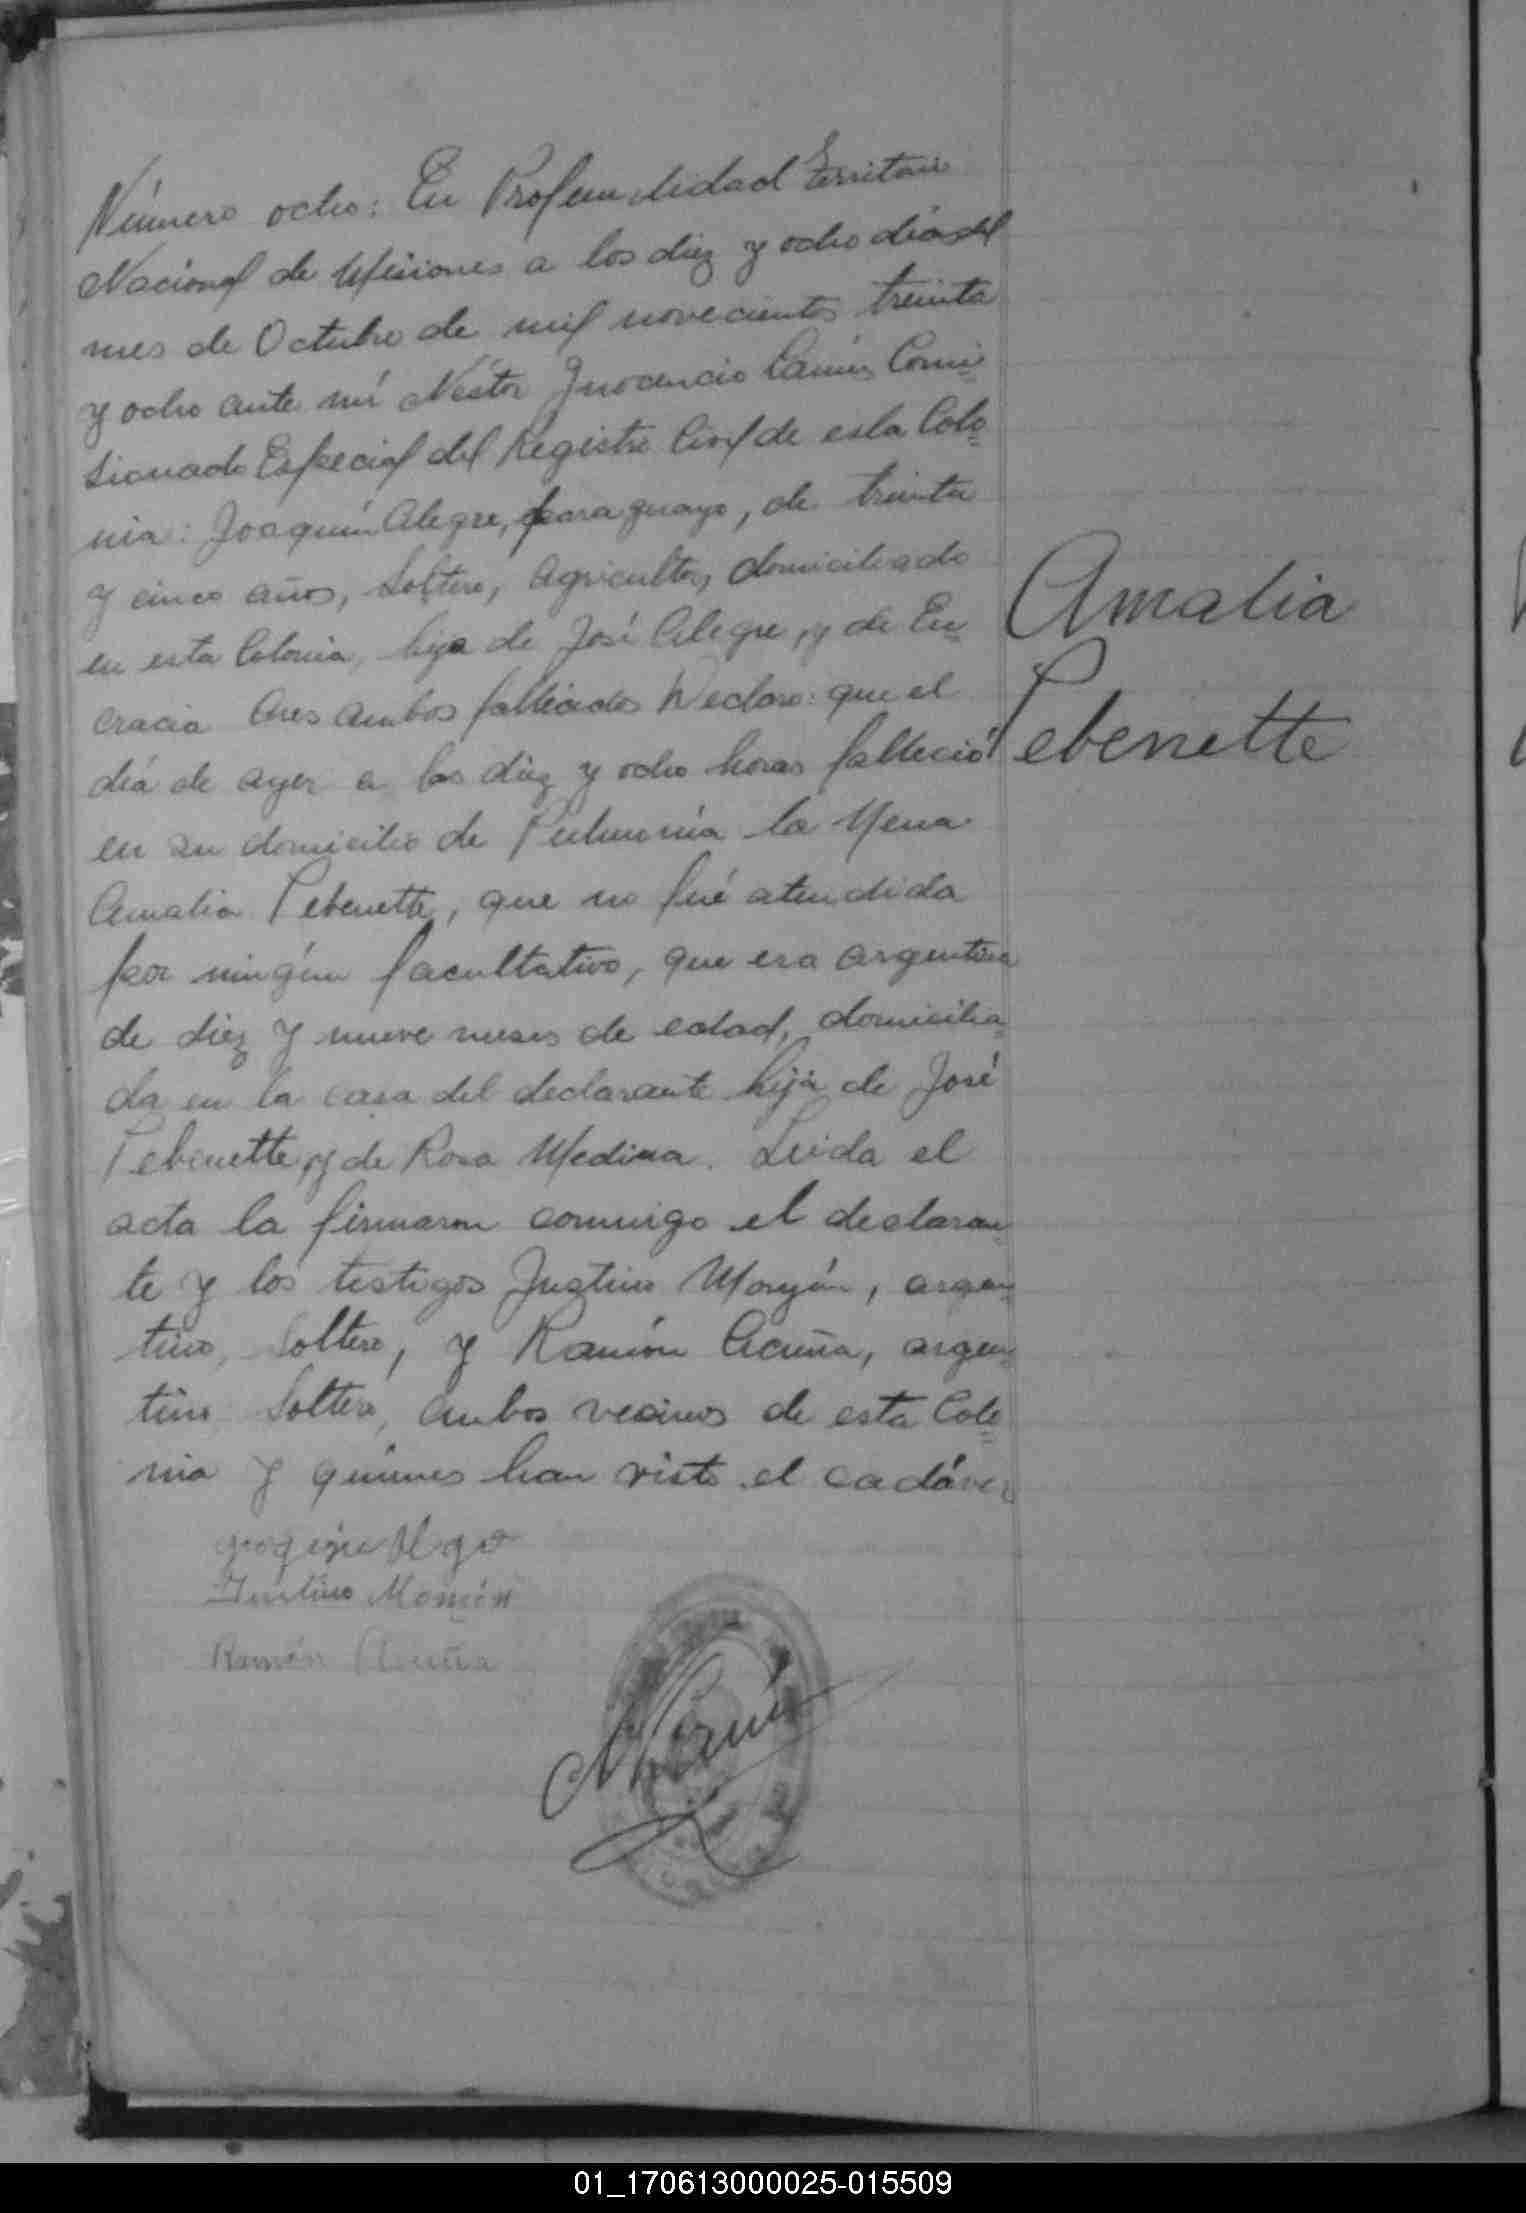 Número ocho: En Profundidad Territorio
Nacional de Misiones a los diez y ocho días del
mes de Octubre de mil novecientos treinta
y ocho ante mí Néstor Inocencio Comi=
sionado Especial del Registro Civil de esta Colo=
nia: Joaquín Alegre, paraguayo, de treinta
y cinco años, Soltero, Agricultor, domiciliado
en esta Colonia, hijo de José Alegre, y de En=
cracia Ares ambos fallecidos Declaro: que el
día de ayer a las diez y ocho horas falleció
en su domicilio de Pulmonía la Mena
Amalia Pebenette, que no fué atendida
por ningún facultativo, que era argentina
de diez y nueve meses de edad, domicilia=
da en la casa del declarante hija de José
Pebenette, y de Rosa Medina. Leida el
acta la firmaron conmigo el declaran=
te y los testigos Justino Monjón, argen=
tino, Soltero, y Ramón Acuña, argen=
tino Soltero, ambos vecinos de esta Colo=
nia y quienes han visto el cadáver
Justino
Ramón Acuña
Amalia
Pebenette
01_170613000025-015509